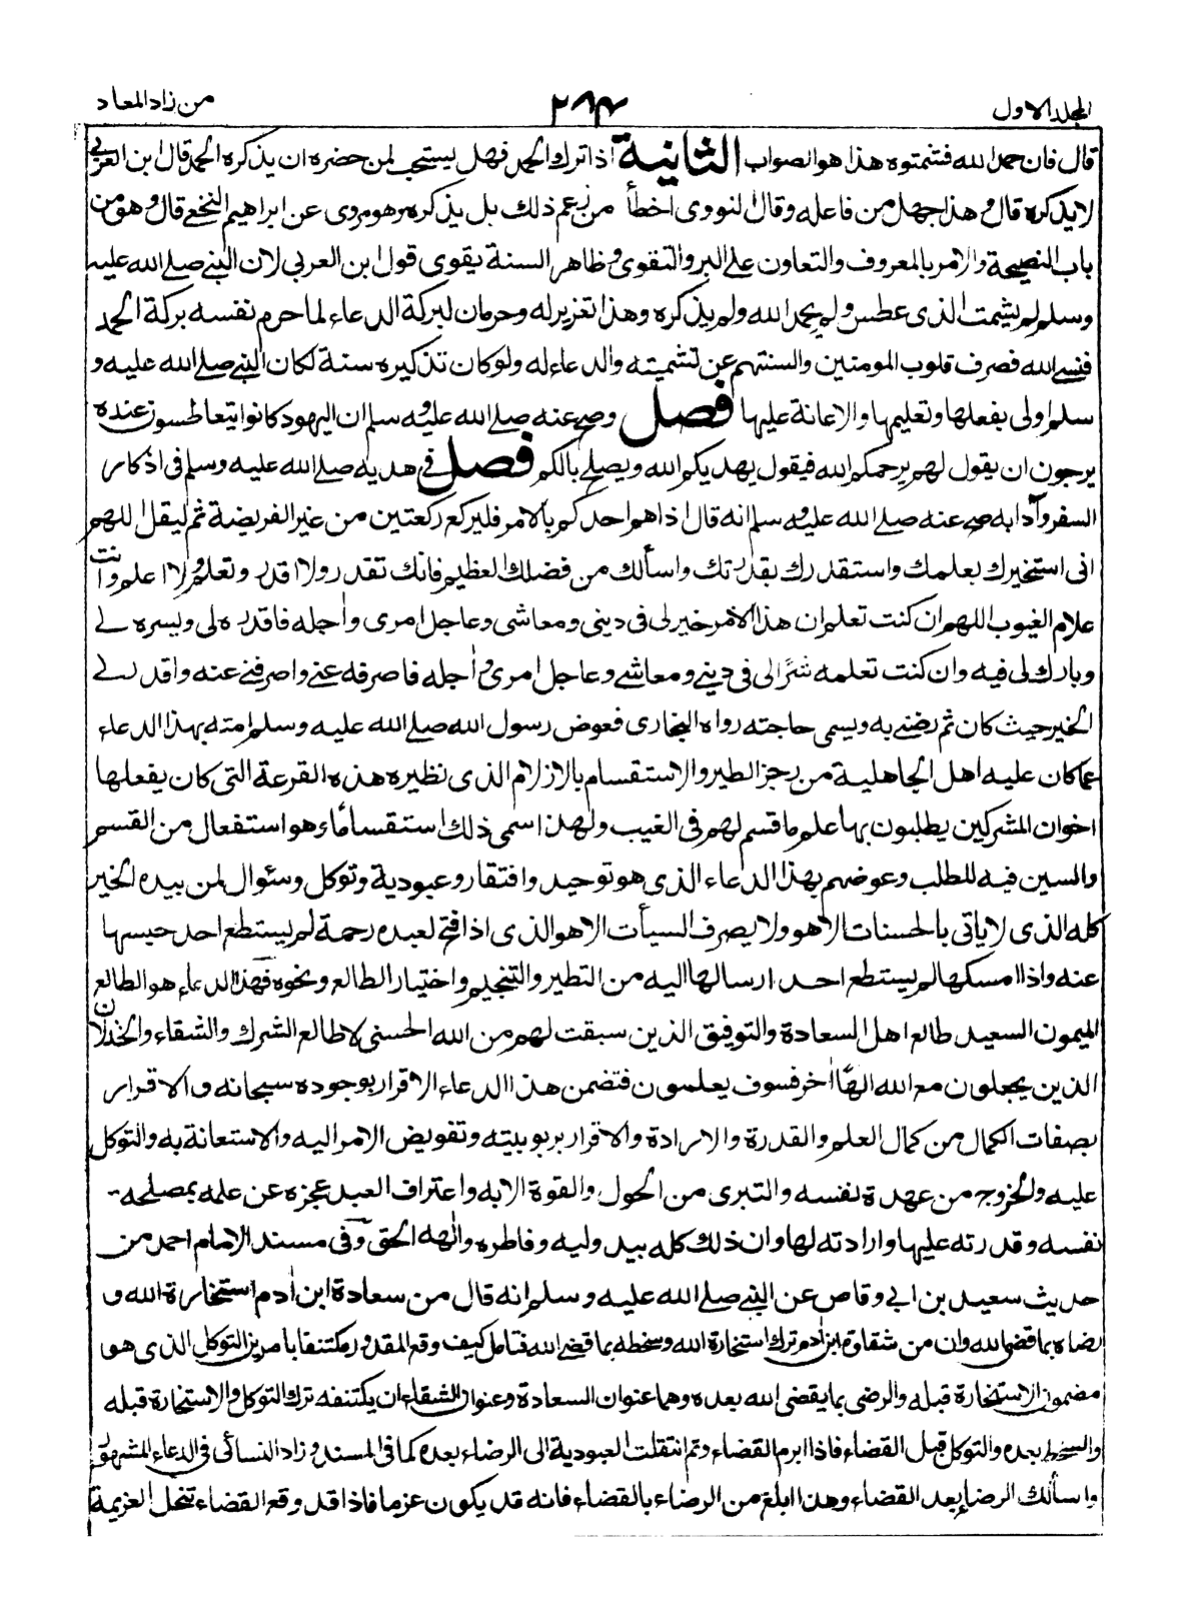 المجلد الاول
٢٨٣
من زاد المعاد
قال فان حمد الله فشمتوه هذا هو الصواب الثانية اذا ترك الحمد فهل يستحب لمن حضره ان يذكره الحمد قال ابن العربي
لا يذكره قال وهذا جهل من فاعله وقال النووى اخطأ من زعم ذلك بل يذكره وهو مروى عن ابراهيم النخعي قال وهو من
باب النصيحة والامر بالمعروف والتعاون على البر والتقوى وظاهر السنة يقوى قول ابن العربي لان النبي صلى الله عليه
وسلم لم يشمت الذى عطس ولم يحمد الله ولم يذكره وهذا تعزير له وحرمان لبركة الدعاء لما حرم نفسه بركة الحمد
فنسى الله فصرف قلوب المومنين والسنتهم عن تشميته والدعاء له ولو كان تذكيره سنة لكان النبي صلى الله عليه و
سلم اولى بفعلها وتعليمها والاعانة عليها فصل وصح عنه صلى الله عليه وسلم ان اليهود كانوا يتعاطسون عنده
يرجون ان يقول لهم يرحمكم الله فيقول يهديكم الله ويصلح بالكم فصل فى هديه صلى الله عليه وسلم فى اذكار
السفر وآدابه صح عنه صلى الله عليه وسلم انه قال اذا هم احدكم بالامر فليركع ركعتين من غير الفريضة ثم ليقل اللهم
انى استخيرك بعلمك واستقدرك بقدرتك واسألك من فضلك العظيم فانك تقدر ولا اقدر وتعلم ولا اعلم وانت
علام الغيوب اللهم ان كنت تعلم ان هذا الامر خير لى فى دينى ومعاشى وعاجل امرى وآجله فاقدره لى ويسره لى
وبارك لى فيه وان كنت تعلمه شرًا لى فى دينى ومعاشى وعاجل امرى وآجله فاصرفه عنى واصرفنى عنه واقدر لى
الخير حيث كان ثم رضنى به ويسمى حاجته رواه البخارى فعوض رسول الله صلى الله عليه وسلم امته بهذا الدعاء
عما كان عليه اهل الجاهلية من زجر الطير والاستقسام بالازلام الذى نظيره هذه القرعة التى كان يفعلها
اخوان المشركين يطلبون بها علم ما قسم لهم فى الغيب ولهذا سمى ذلك استقسامًا وهو استفعال من القسم
والسين فيه للطلب وعوضهم بهذا الدعاء الذى هو توحيد وافتقار وعبودية وتوكل وسئوال لمن بيده الخير
كله الذى لا ياتى بالحسنات الا هو ولا يصرف السيأت الا هو الذى اذا فتح لعبده رحمة لم يستطع احد حبسها
عنه واذا امسكها لم يستطع احد ارسالها اليه من التطير والتنجيم واختيار الطالع ونحوه فهذا الدعاء هو الطالع
الميمون السعيد طالع اهل السعادة والتوفيق الذين سبقت لهم من الله الحسنى لا طالع الشرك والشقاء والخذلان
الذين يجعلون مع الله الهًا آخر فسوف يعلمون فتضمن هذا الدعاء الاقرار بوجوده سبحانه والاقرار
بصفات الكمال من كمال العلم والقدرة والارادة والاقرار بربوبيته وتفويض الامر اليه والاستعانة به والتوكل
عليه والخروج من عهدة نفسه والتبرى من الحول والقوة الا به واعتراف العبد بعجزه عن علمه بمصلحة
نفسه وقدرته عليها وارادته لها وان ذلك كله بيد وليه وفاطره والهه الحق وفى مسند الامام احمد من
حديث سعيد بن ابي وقاص عن النبي صلى الله عليه وسلم انه قال من سعادة ابن آدم استخارة الله و
رضاه بما قضى الله وان من شقاوة ابن آدم ترك استخارة الله وسخطه بما قضى الله فتامل كيف وقع المقدور مكتنفا بامرين التوكل الذى هو
مضمون الاستخارة قبله والرضى بما يقضى الله بعده وهما عنوان السعادة وعنوان الشقاء ان يكتنفه ترك التوكل والاستخارة قبله
والسخط بعده والتوكل قبل القضاء فاذا ابرم القضاء وتم انتقلت العبودية الى الرضاء بعده كما فى المسند وزاد النسائى فى الدعاء المشهور
واسألك الرضا بعد القضاء وهذا ابلغ من الرضاء بالقضاء فانه قد يكون عزما فاذا قد وقع القضاء تنحل العزيمة